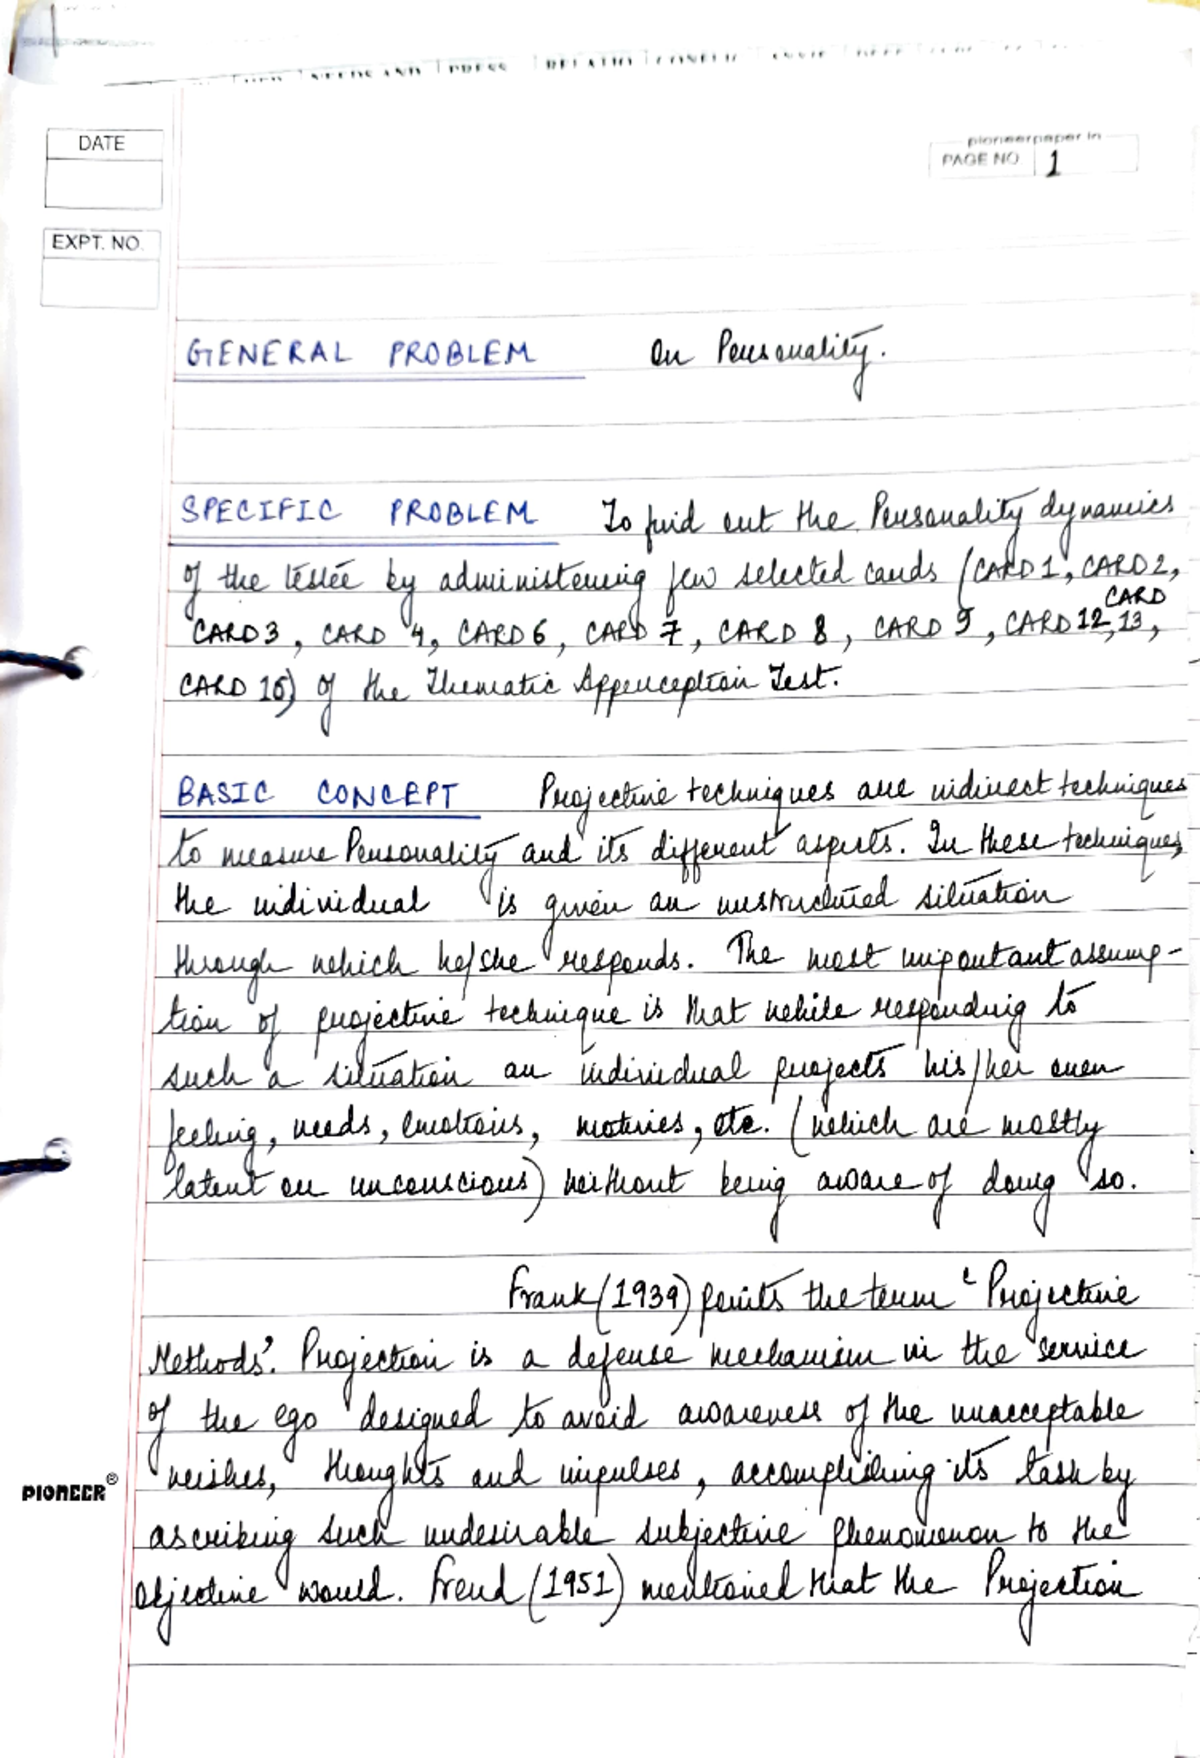 NEEDS AND PRESS RELATIO CONFLIC
DATE
pioneerpaper.in
PAGE NO. 1
EXPT. NO.
GENERAL PROBLEM On Personality.
SPECIFIC PROBLEM To find out the Personality dynamics
of the testee by administering few selected cards (CARD 1, CARD 2,
CARD
CARD 3, CARD 4, CARD 6, CARD 7, CARD 8, CARD 9, CARD 12, 13,
CARD 16) of the Thematic Apperception Test.
BASIC CONCEPT Projective techniques are indirect techniques
to measure Personality and its different aspects. In these techniques,
the individual is given an unstructured situation
through which he/she responds. The most important assump-
tion of projective technique is that while responding to
such a situation an individual projects his/her own
feeling, needs, emotions, motives, etc. (which are mostly
latent or unconscious) without being aware of doing so.
Frank (1939) the term 'Projective
Methods'. Projection is a defense mechanism in the service
of the ego designed to avoid awareness of the unacceptable
wishes, thoughts and impulses, accomplishing its task by
ascribing such undesirable subjective phenomenon to the
objective world. Freud (1951) mentioned that the Projection
PIONEER®